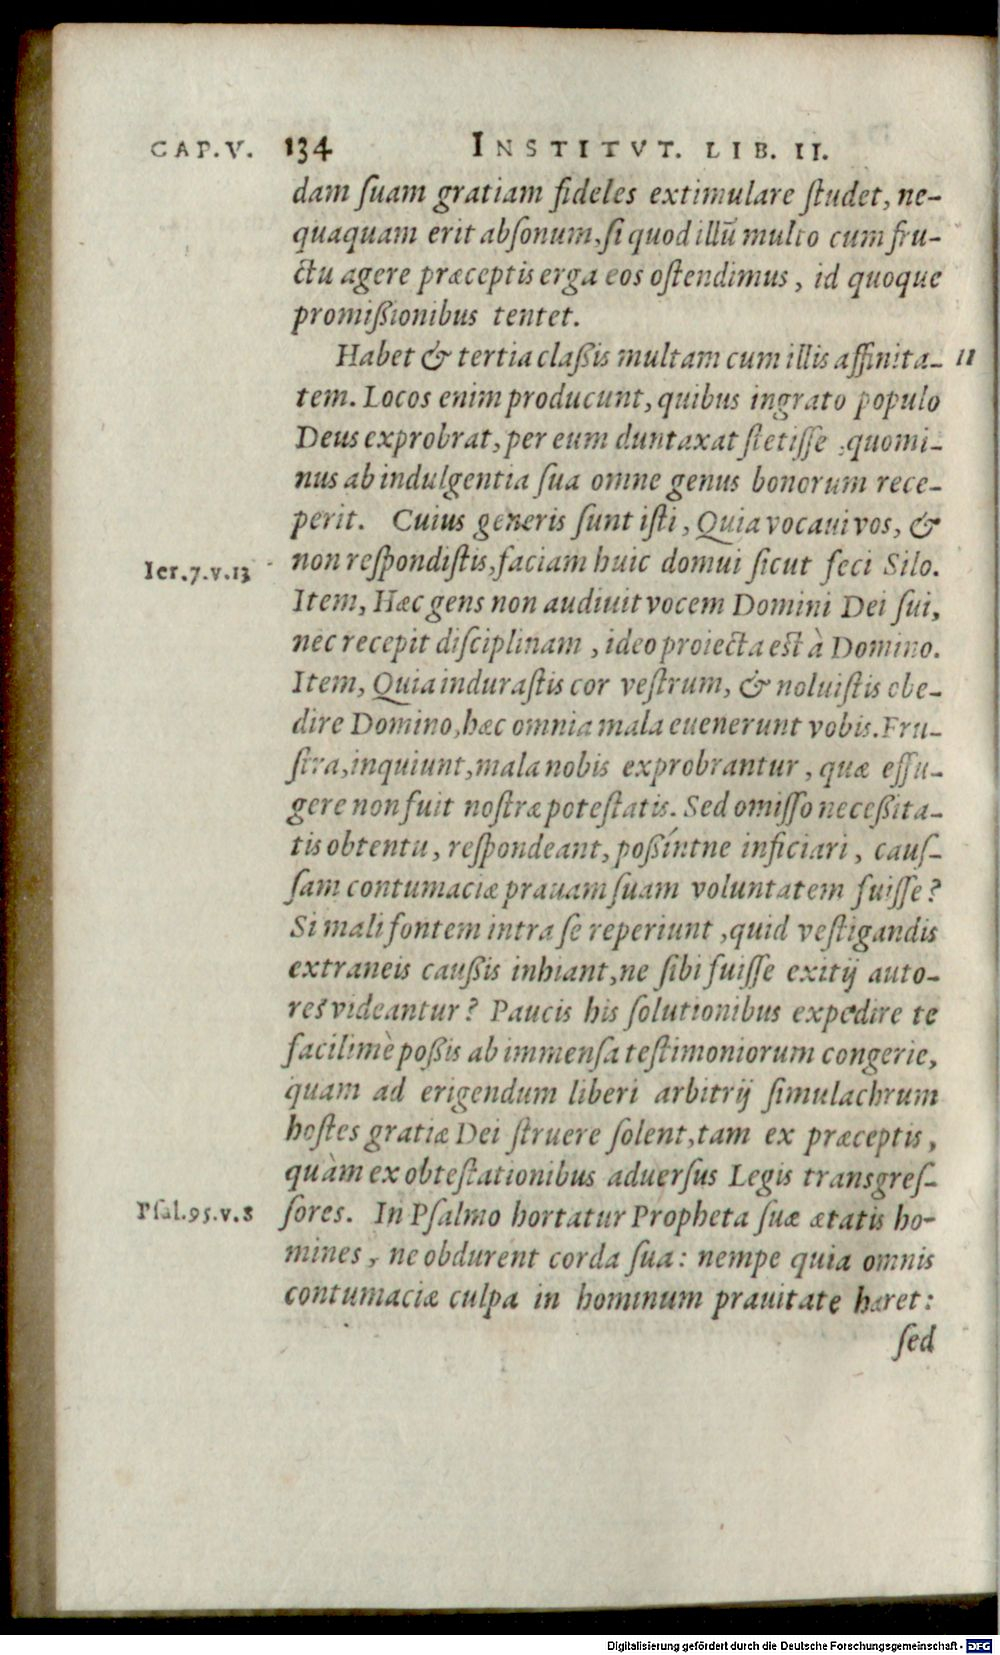 CAP.V. 134 INSTITVT. LIB. II.
dam ſuam gratiam fideles extimulare ſtudet, ne-
quaquam erit abſonum, ſi quod illũ multo cum fru-
ctu agere præceptis erga eos oſtendimus, id quoque
promißionibus tentet.
Habet & tertia claßis multam cum illis affinita- 11
tem. Locos enim producunt, quibus ingrato populo
Deus exprobrat, per eum duntaxat ſtetiſſe, quomi-
nus ab indulgentia ſua omne genus bonorum rece-
perit. Cuius generis ſunt iſti, Quia vocaui vos, &
Ier.7.v.13 non reſpondiſtis, faciam huic domui ſicut feci Silo.
Item, Hæc gens non audiuit vocem Domini Dei ſui,
nec recepit diſciplinam, ideo proiecta eſt à Domino.
Item, Quia induraſtis cor veſtrum, & noluiſtis obe-
dire Domino, hæc omnia mala euenerunt vobis. Fru-
ſtra, inquiunt, mala nobis exprobrantur, quæ effu-
gere non fuit noſtræ poteſtatis. Sed omiſſo neceßita-
tis obtentu, reſpondeant, poßíntne inficiari, cauſ-
ſam contumaciæ prauam ſuam voluntatem fuiſſe?
Si mali fontem intra ſe reperiunt, quid veſtigandis
extraneis caußis inhiant, ne ſibi fuiſſe exitij auto-
res videantur? Paucis his ſolutionibus expedire te
facilimè poßis ab immenſa teſtimoniorum congerie,
quam ad erigendum liberi arbitrij ſimulachrum
hoſtes gratiæ Dei ſtruere ſolent, tam ex præceptis,
quàm ex obteſtationibus aduerſus Legis transgreſ-
Pſal.95.v.8 ſores. In Pſalmo hortatur Propheta ſuæ ætatis ho-
mines, ne obdurent corda ſua: nempe quia omnis
contumaciæ culpa in hominum prauitate hæret:
ſed
Digitalisierung gefördert durch die Deutsche Forschungsgemeinschaft - DFG